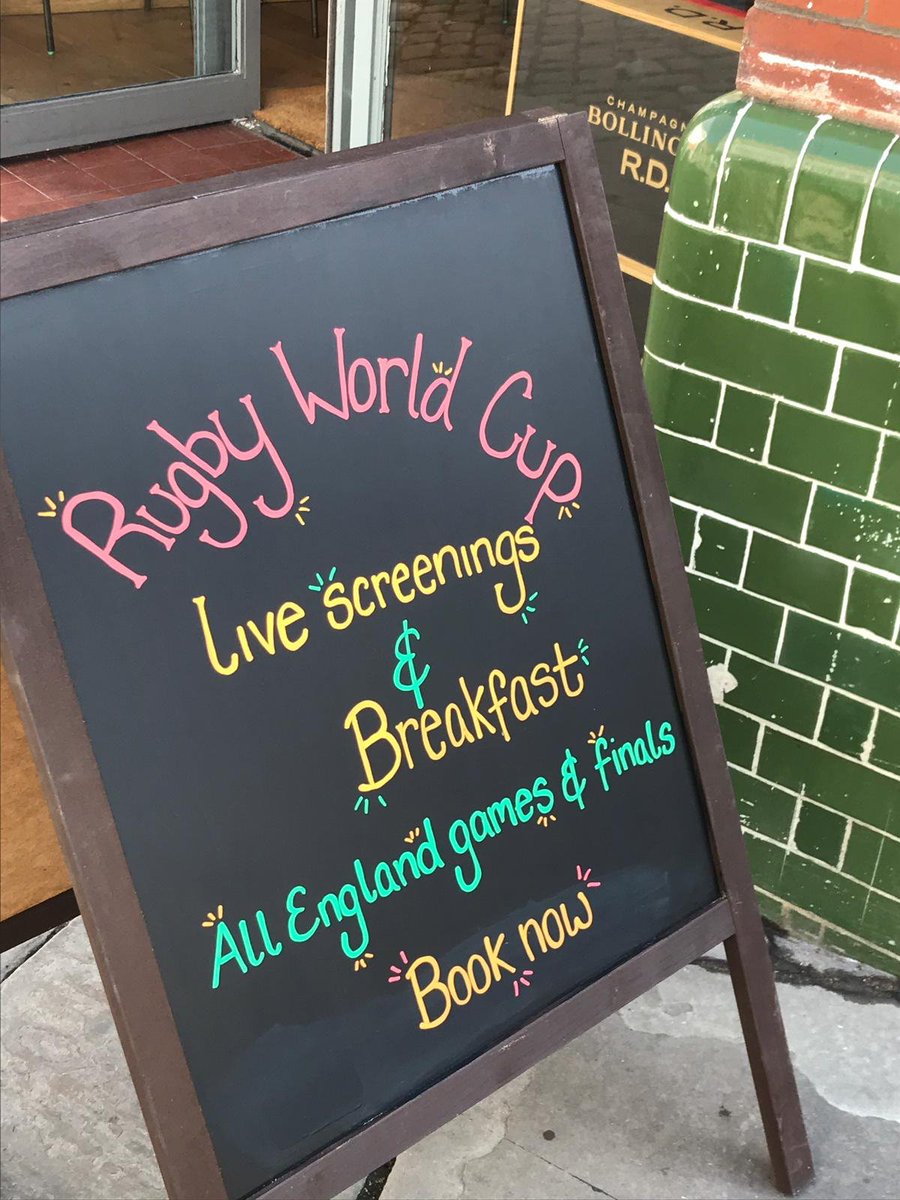 Rugby World Cup
Live screenings
&
Breakfast
All England games & finals
Book now
CHAMPAGN
BOLLING
R.D.
R.D.